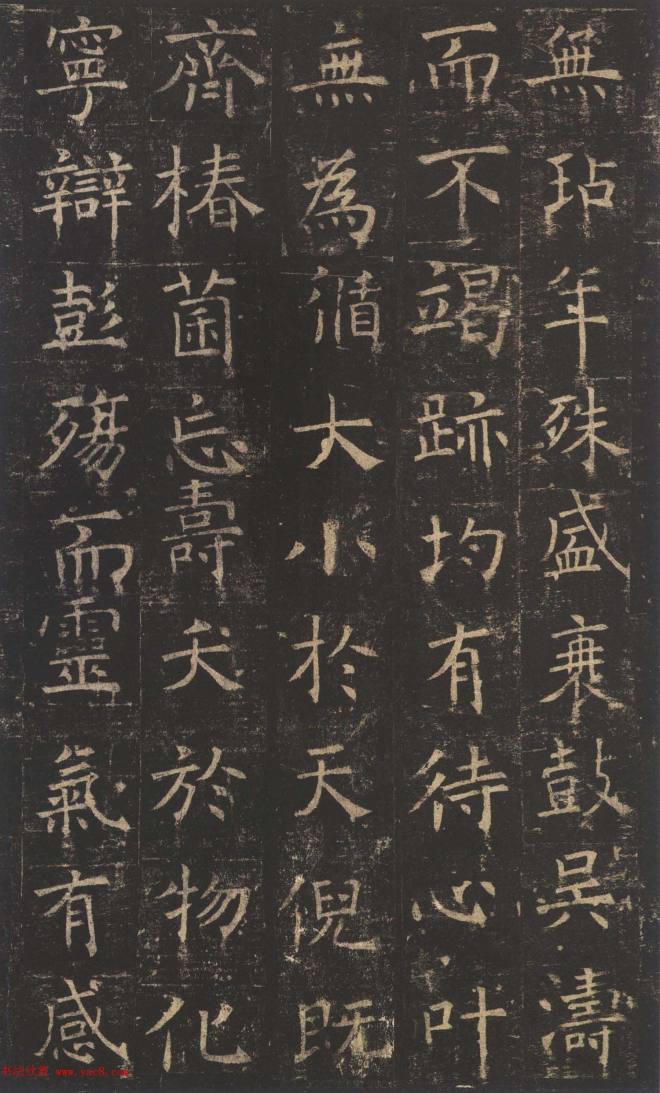 無玷年殊盛衰鼓吳濤
而不竭跡均有待心叶
無為循大小於天倪既
齊椿菌忘壽夭於物化
寧辯彭殤而靈氣有感
书法欣赏 www.yac8.com